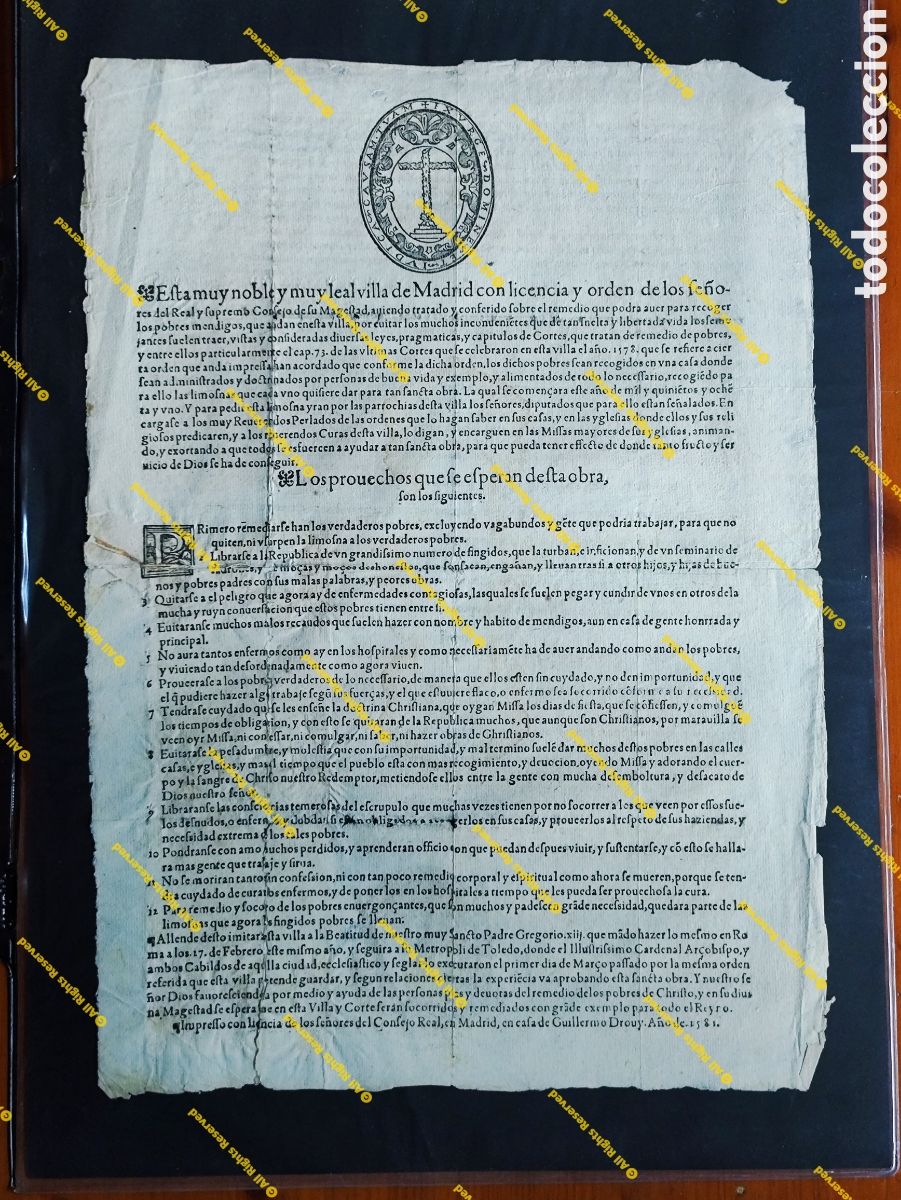 ✝ EXVRGE DOMINE ET IVDICA CAVSAM TVAM
Esta muy noble y muy leal villa de Madrid con licencia y orden de los seño-
res del Real y supremo Consejo de su Magestad, auiendo tratado y conferido sobre el remedio que podra auer para recoger
los pobres mendigos, que andan enesta villa, por euitar los muchos inconueniẽtes que de tan suelta y libertada vida los seme
jantes suelen traer, vistas y consideradas diuersas leyes, pragmaticas, y capitulos de Cortes, que tratan de remedio de pobres,
y entre ellos particularmente el cap. 73. de las vltimas Cortes que se celebraron en esta villa el año. 1578. que se refiere a cier
ta orden que anda impressa, han acordado que conforme la dicha orden, los dichos pobres sean recogidos en vna casa donde
sean administrados y doctrinados por personas de buena vida y exemplo, y alimentados de todo lo necessario, recogiẽdo pa
ra ello las limosnas que cada vno quisiere dar para tan sancta obra. La qual se començara este año de mil y quiniẽtos y ochẽ
ta y vno. Y para pedir la limosna yran por las parrochias desta villa los señores, diputados que para ello estan señalados. En
cargase a los muy Reuerendos Perlados de las ordenes que lo hagan saber en sus casas, y en las yglesias donde ellos y sus reli
giosos predicaren, y a los reuerendos Curas desta villa, lo digan, y encarguen en las Missas mayores de sus yglesias, animan-
do, y exortando a que todos se esfuercen a ayudar a tan sancta obra, para que pueda tener effecto de donde tanto fructo y ser
uicio de Dios se ha de conseguir.
Los prouechos que se esperan desta obra,
son los siguientes.
PRimero rẽmediarse han los verdaderos pobres, excluyendo vagabundos y gẽte que podria trabajar, para que no
quiten, ni vsurpen la limosna a los verdaderos pobres.
2 Librarse a la Republica de vn grandissimo numero de fingidos, que la turban, e inficionan, y de vn seminario de
ladrones, y de moças y moços deshonestos, que sonsacan, engañan, y lleuan tras si a otros hijos, y hijas de bue-
nos y pobres padres con sus malas palabras, y peores obras.
3 Quitarse a el peligro que agora ay de enfermedades contagiosas, las quales se suelen pegar y cundir de vnos en otros de la
mucha y ruyn conuersacion que estos pobres tienen entre si.
4 Euitaranse muchos malos recaudos que suelen hazer con nombre y habito de mendigos, aun en casa de gente honrrada y
principal.
5 No aura tantos enfermos como ay en los hospitales y como necessariamẽte ha de auer andando como andan los pobres,
y viuiendo tan desordenadamente como agora viuen.
6 Proueerase a los pobres verdaderos de lo necessario, de manera que ellos esten sin cuydado, y no den importunidad, y que
el q̃ pudiere hazer algo trabaje segũ sus fuerças, y el que estuuiere flaco, o enfermo sea socorrido cõforme a su necessidad.
7 Tendrase cuydado que se les enseñe la doctrina Christiana, que oygan Missa los dias de fiesta, que se cõfiessen, y comulguẽ
los tiempos de obligacion, y con esto se quitaran de la Republica muchos, que aunque son Christianos, por marauilla se
veen oyr Missa, ni confessar, ni comulgar, ni saber, ni hazer obras de Christianos.
8 Euitarase la pesadumbre, y molestia que con su importunidad, y mal termino suelẽ dar muchos destos pobres en las calles
casas, e yglesias, y mas al tiempo que el pueblo esta con mas recogimiento, y deuocion, oyendo Missa y adorando el cuer-
po y la sangre de Christo nuestro Redemptor, metiendose ellos entre la gente con mucha desemboltura, y desacato de
Dios nuestro señor.
9 Libraranse las consciencias temerosas del escrupulo que muchas vezes tienen por no socorrer a los que veen por essos sue-
los desnudos, o enfermos y dubdar si estan obligados a acogerlos en sus casas, y proueerlos al respeto de sus haziendas, y
necessidad extrema de los tales pobres.
10 Pondranse con amo muchos perdidos, y aprenderan officio con que puedan despues viuir, y sustentarse, y cõ esto se halla-
ra mas gente que trabaje y sirua.
11 No se moriran tanto sin confession, ni con tan poco remedio corporal y espiritual como ahora se mueren, porque se ten-
dra cuydado de curar los enfermos, y de ponerlos en los hospitales a tiempo que les pueda ser prouechosa la cura.
12 Para remedio y socorro de los pobres enuergonçantes, que son muchos y padescẽ grãde necessidad, quedara parte de las
limosnas que agora los fingidos pobres se lleuan.
¶Allende desto imitara esta villa a la Beatitud de nuestro muy Sancto Padre Gregorio. xiij. que mãdo hazer lo mesmo en Ro
ma a los. 17. de Febrero este mismo año, y seguira a la Metropoli de Toledo, donde el Illustrissimo Cardenal Arçobispo, y
ambos Cabildos de aquella ciudad, ecclesiastico y seglar lo executaron el primer dia de Março passado por la mesma orden
referida que esta villa pretende guardar, y segun relaciones ciertas la experiẽcia va aprobando esta sancta obra. Y nuestro se
ñor Dios fauoresciendola por medio y ayuda de las personas pias y deuotas del remedio de los pobres de Christo, y en su diui
na Magestad se espera que en esta Villa y Corte seran socorridos y remediados con grãde exemplo para todo el Reyno.
¶Impresso con licencia de los señores del Consejo Real, en Madrid, en casa de Guillermo Drouy. Año de. 1581.
todocoleccion
©All Rights Reserved